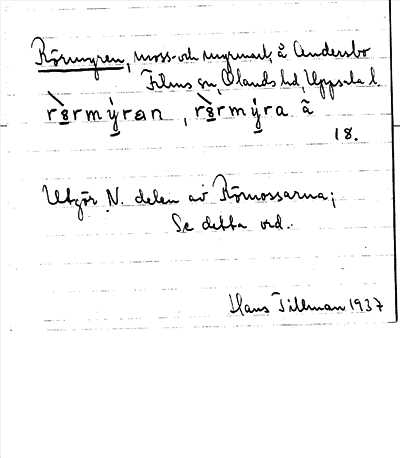 Rörmyren, moss- och myrmark, å Andersbo
Films sn, Olands hd, Uppsala l.
rö̀rmýran, rö̀rmýra ã
18.
Utgör N. delen av Römossarna;
Se detta ord.
Hans Tillman 1937